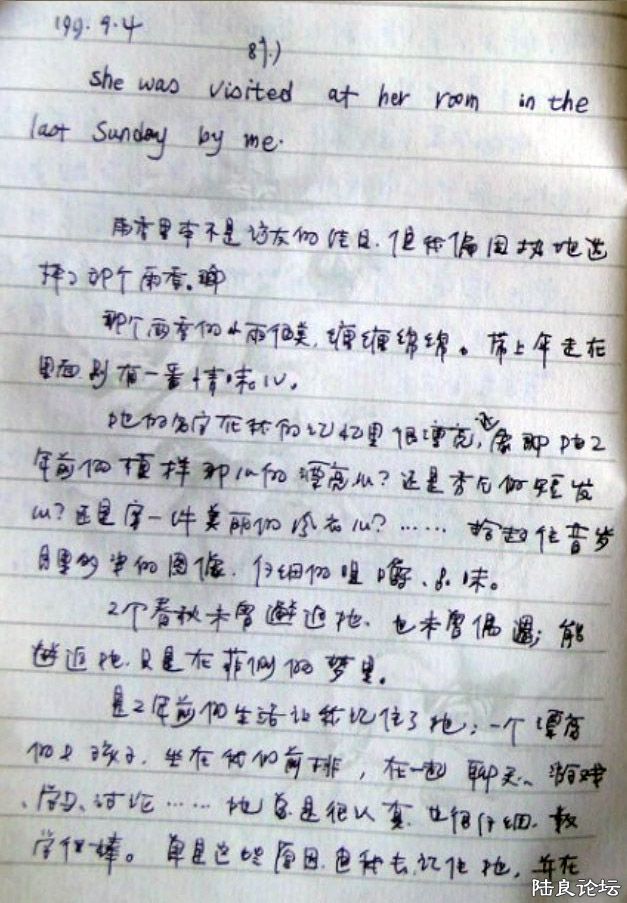 199.9.4
87.)
she was visited at her room in the
last Sunday by me.
雨季里本不是访友的佳日.但我偏固执地选
择了那个雨季。
那个雨季的小雨很美,缠缠绵绵。带上伞走在
里面别有一番情味儿。
她的名字在我的记忆里很漂亮,还象那她2
年前的模样那么的漂亮么?还是李儿的短发
么?还是穿一件美丽的冷衣么?…… 拾起往昔岁
月里多半的图像.仔细的咀嚼、品味。
2个春秋未曾邂逅她.也未曾偶遇;能
邂逅她.只是在菲侧的梦里。
是2年前的生活让我记住了她;一个漂亮
的女孩子.坐在我的前排,在一起聊天、游戏
、学习、讨论……她总是很认真.也很仔细.数
学很棒。单是这些原因.使我去记住她,并在
陆良论坛